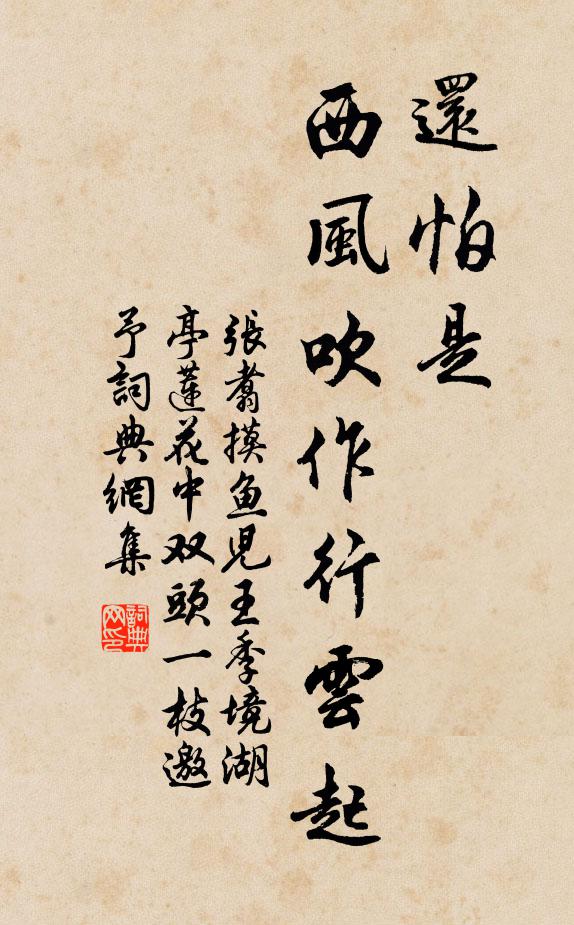 還怕是
西風吹作行雲起
張翥摸鱼児王季境湖
亭蓮花中双頭一枝邀
予詞典網集
詞典
网印